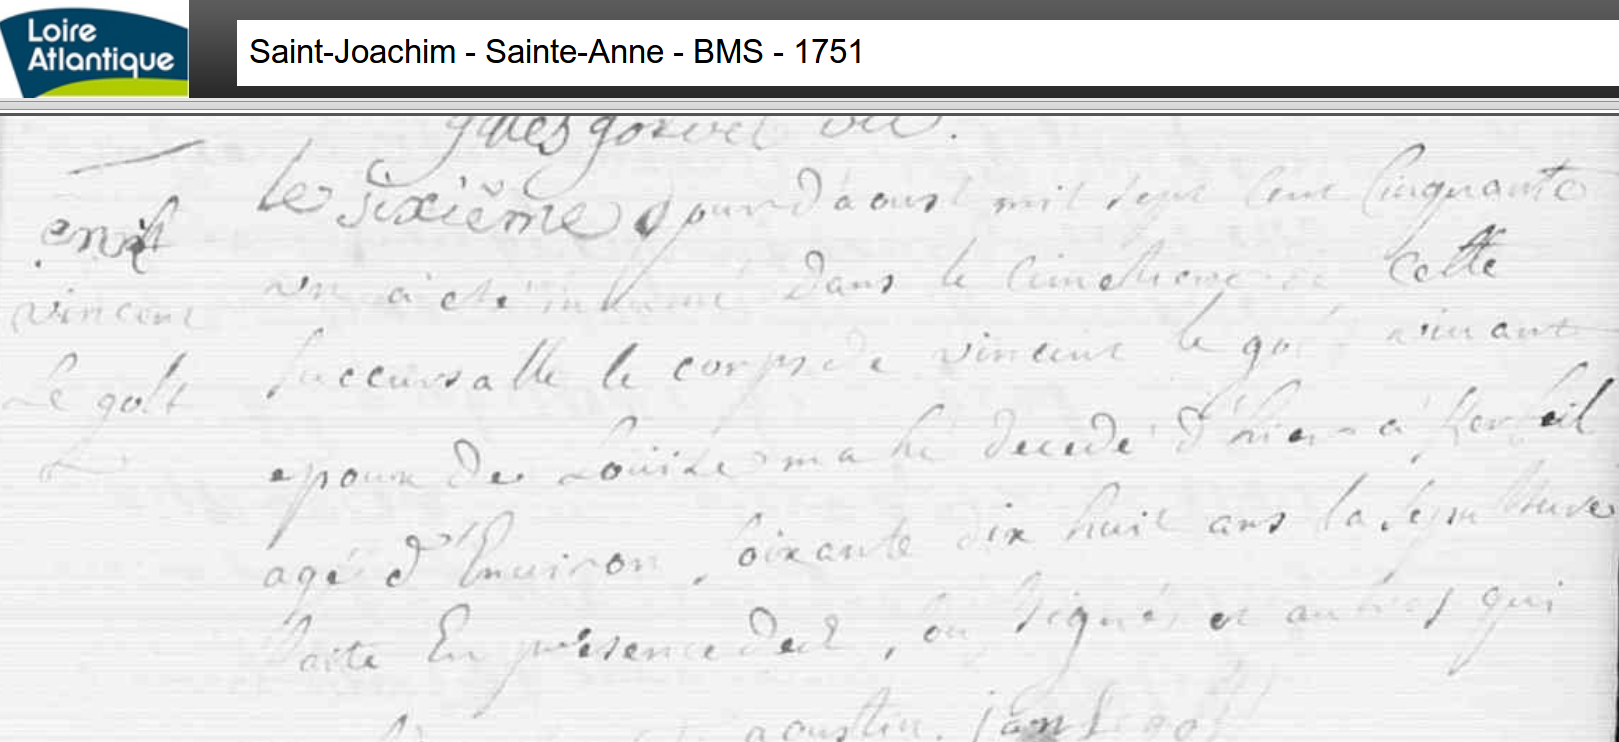 Loire
Atlantique
Saint-Joachim - Sainte-Anne - BMS - 1751
le sixième jour d'aoust mil sept cent cinquante
un a eté inhumé dans le cimetiere de cette
vincent
succursalle le corps de vincent le golt vivant
Le golt
epoux de Louise mahé decedé d'hier a
agé d'Environ soixante dix huit ans la sepulture
faite En presence des sousignés et autres qui